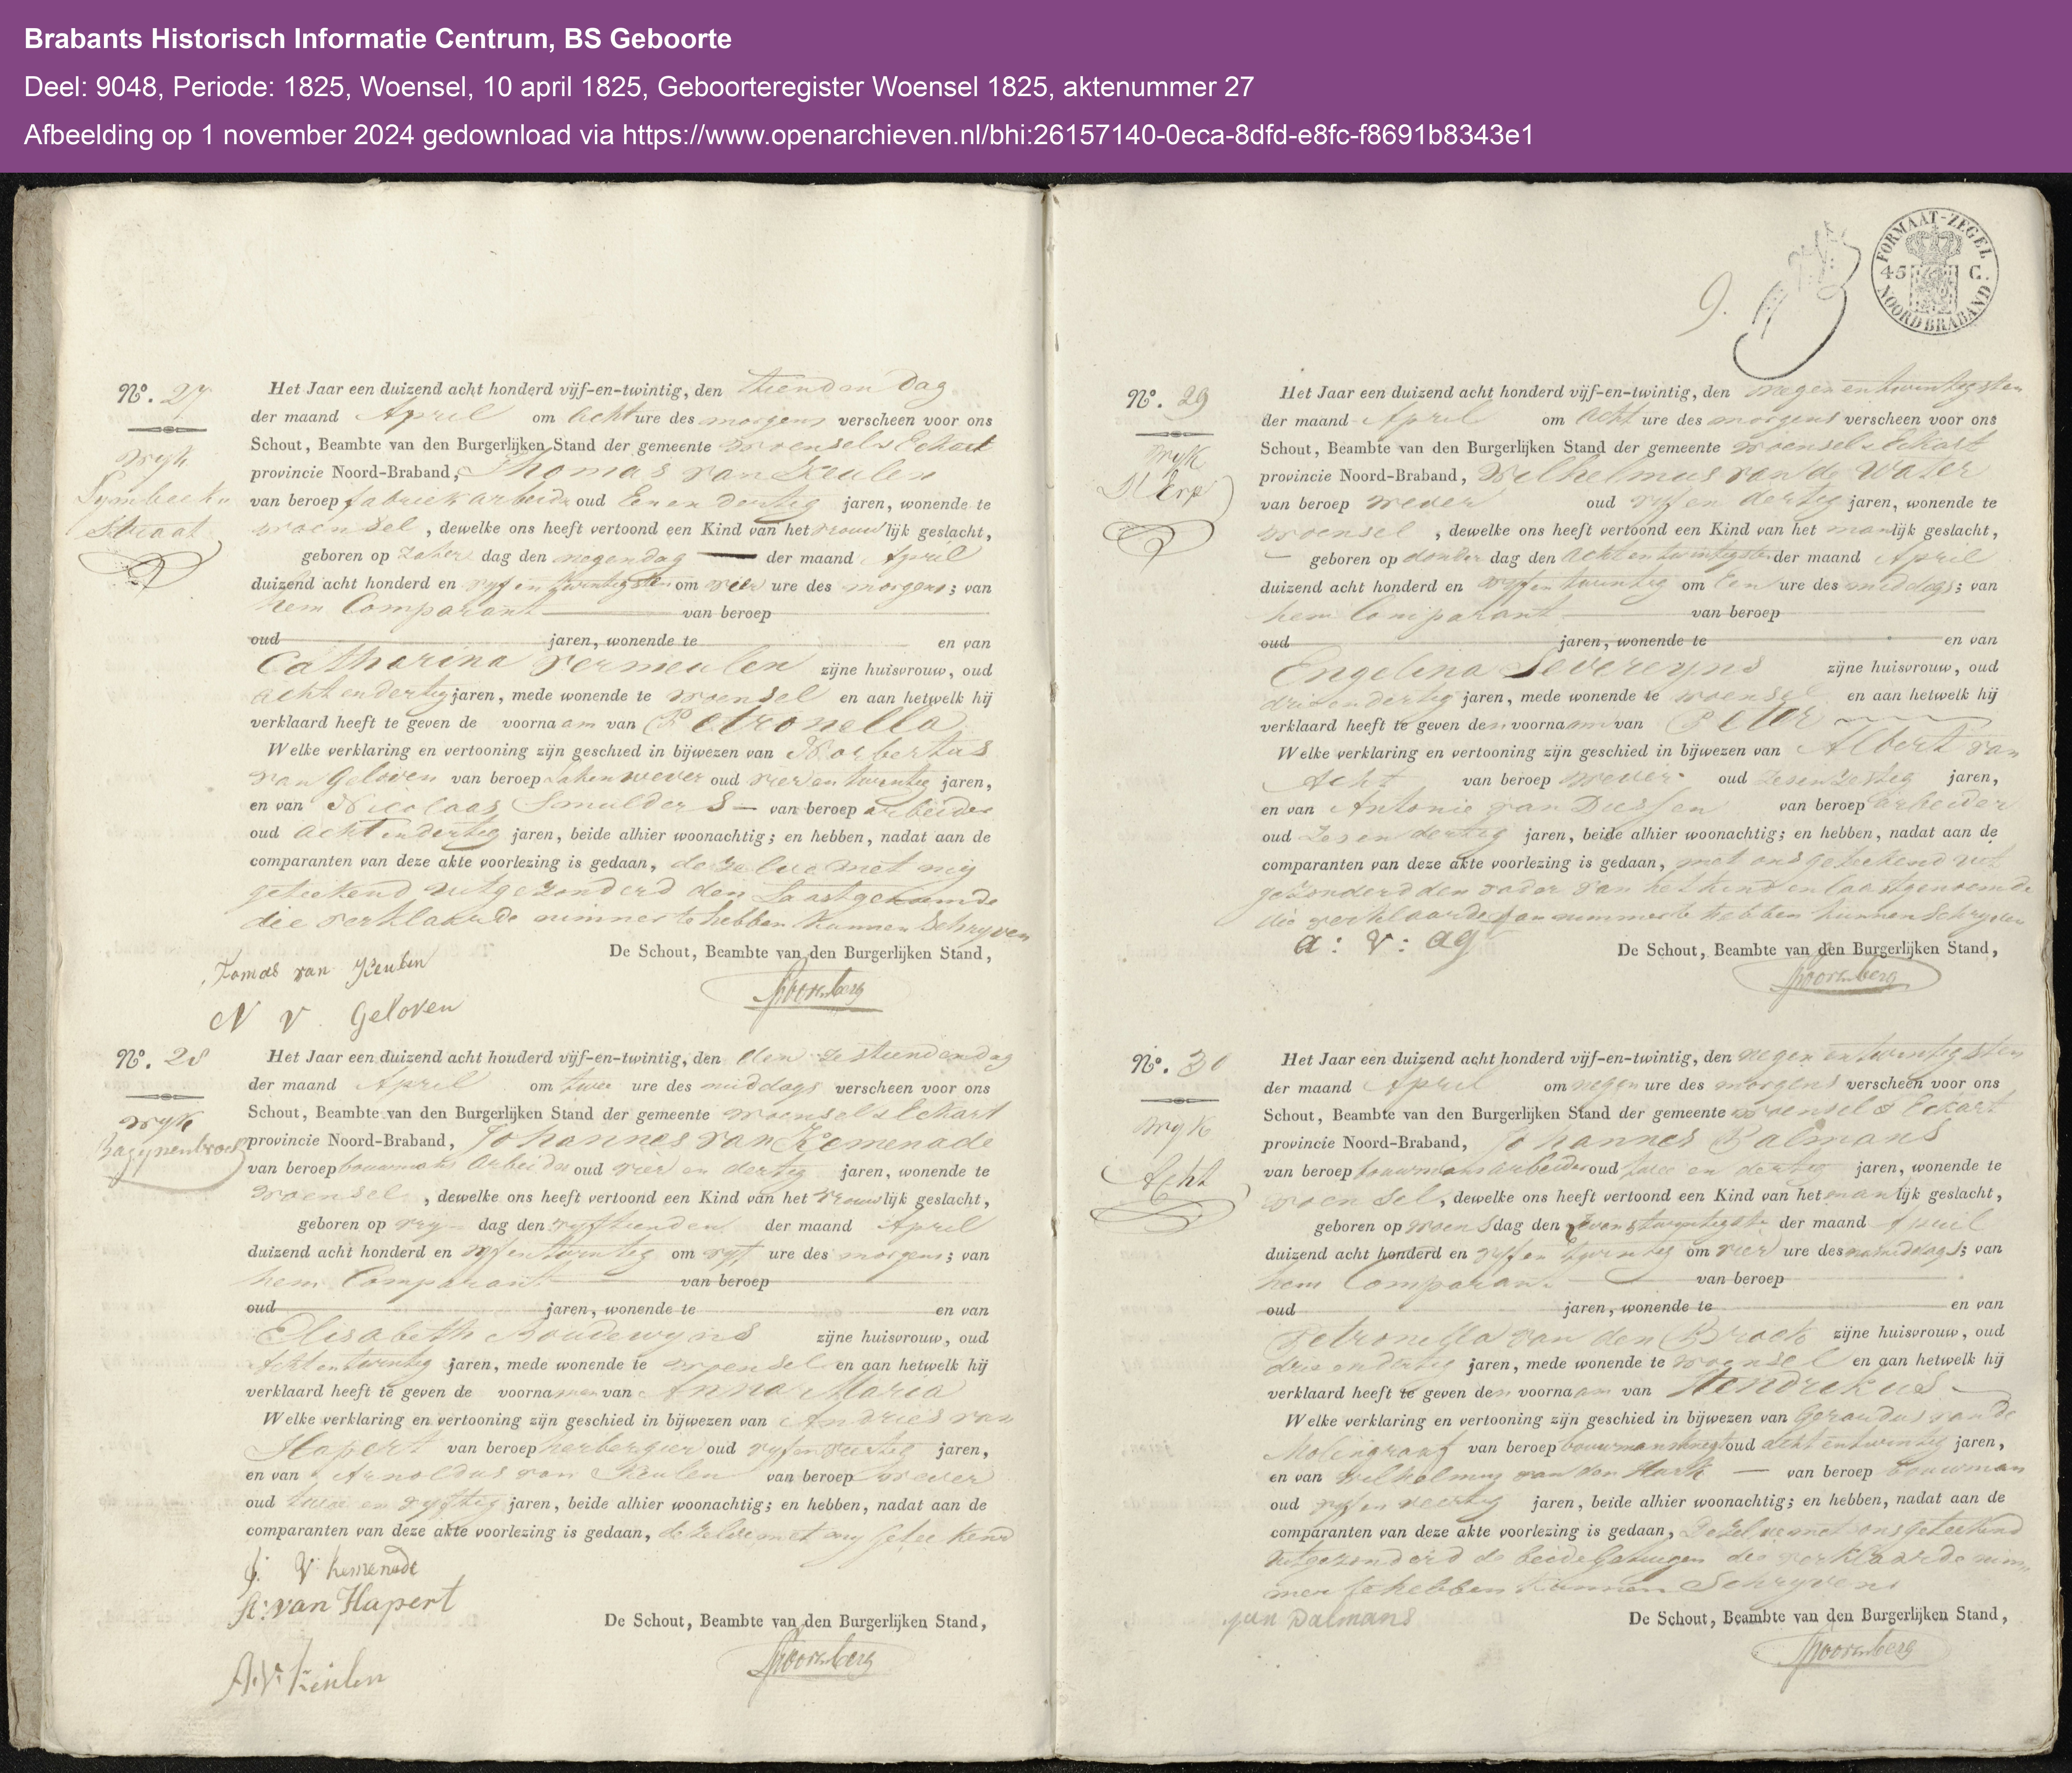 Brabants Historisch Informatie Centrum, BS Geboorte
Deel: 9048, Periode: 1825, Woensel, 10 april 1825, Geboorteregister Woensel 1825, aktenummer 27
Afbeelding op 1 november 2024 gedownload via https://www.openarchieven.nl/bhi:26157140-0eca-8dfd-e8fc-f8691b8343e1
Nº. 27
wyk
Straat
Het Jaar een duizend acht honderd vijf-en-twintig, den tienden dag
der maand April om acht ure des morgens verscheen voor ons
Schout, Beambte van den Burgerlijken Stand der gemeente Woensel & Eckart
provincie Noord-Braband, Thomas van Keulen
van beroep fabriekarbeider oud Een en dertig jaren, wonende te
woensel, dewelke ons heeft vertoond een Kind van het vrouwlijk geslacht,
geboren op Zater dag den negen dag der maand April
duizend acht honderd en vyf en twintigsten om vier ure des morgens; van
hem Comparant van beroep
oud jaren, wonende te en van
Catharina Vermeulen zijne huisvrouw, oud
acht en dertig jaren, mede wonende te woensel en aan hetwelk hij
verklaard heeft te geven de voornaam van Petronella
Welke verklaring en vertooning zijn geschied in bijwezen van Norbertus
van Geloven van beroep Lakenwever oud vier en twintig jaren,
en van Nicolaas Smulders van beroep arbeider
oud acht en dertig jaren, beide alhier woonachtig; en hebben, nadat aan de
comparanten van deze akte voorlezing is gedaan, dezelve met my
geteekend uitgezonderd den Laastgenoemde
die verklaarde nimmer te hebben kunnen Schryven
De Schout, Beambte van den Burgerlijken Stand,
Tomas van Keulen
Spoorenberg
N V Geloven
Nº. 28
wyk
Het Jaar een duizend acht honderd vijf-en-twintig, den den zestienden dag
der maand April om twee ure des middags verscheen voor ons
Schout, Beambte van den Burgerlijken Stand der gemeente woensel & Eckart
provincie Noord-Braband, Johannes van Kemenade
van beroep bouwmans arbeider oud vier en dertig jaren, wonende te
Woensel, dewelke ons heeft vertoond een Kind van het vrouwlijk geslacht,
geboren op vry dag den vyftienden der maand April
duizend acht honderd en vyf en twintig om vyf ure des morgens; van
hem Comparant van beroep
oud jaren, wonende te en van
Elisabeth Boudewyns zijne huisvrouw, oud
Acht en twintig jaren, mede wonende te woensel en aan hetwelk hij
verklaard heeft te geven de voornamen van Anna Maria
Welke verklaring en vertooning zijn geschied in bijwezen van Andries van
Hapert van beroep herbergier oud vyf en jaren,
en van Arnoldus van Keulen van beroep wever
oud twee en vyftig jaren, beide alhier woonachtig; en hebben, nadat aan de
comparanten van deze akte voorlezing is gedaan, dezelve met my geteekend
J. V Kemenade
A: van Hapert
De Schout, Beambte van den Burgerlijken Stand,
Spoorenberg
A. V. Keulen
9.
FORMAAT-ZEGEL
45 C.
NOORD BRABAND
Nº. 29
wyk
Het Jaar een duizend acht honderd vijf-en-twintig, den negen en twintigsten
der maand April om acht ure des morgens verscheen voor ons
Schout, Beambte van den Burgerlijken Stand der gemeente Woensel & Eckart
provincie Noord-Braband, Wilhelmus van de Water
van beroep wever oud vyf en dertig jaren, wonende te
woensel, dewelke ons heeft vertoond een Kind van het manlijk geslacht,
geboren op donder dag den acht en twintigsten der maand April
duizend acht honderd en vyf en twintig om Een ure des middags; van
hem Comparant van beroep
oud jaren, wonende te en van
Engelina Severeyns zijne huisvrouw, oud
drie en dertig jaren, mede wonende te woensel en aan hetwelk hij
verklaard heeft te geven den voornaam van Peter
Welke verklaring en vertooning zijn geschied in bijwezen van Albert van
Acht van beroep wever oud zes en zestig jaren,
en van Antonie van Dussen van beroep arbeider
oud zes en dertig jaren, beide alhier woonachtig; en hebben, nadat aan de
comparanten van deze akte voorlezing is gedaan, met ons geteekend uit
gezonderd den vader van het kind en laastgenoemde
die verklaarde nimmer te hebben kunnen Schryven
a: V: ag
De Schout, Beambte van den Burgerlijken Stand,
Spoorenberg
Nº. 30
wyk
Acht
Het Jaar een duizend acht honderd vijf-en-twintig, den negen en twintigsten
der maand April om negen ure des morgens verscheen voor ons
Schout, Beambte van den Burgerlijken Stand der gemeente Woensel & Eckart
provincie Noord-Braband, Johannes Dalmans
van beroep bouwmans arbeider oud twee en dertig jaren, wonende te
woensel, dewelke ons heeft vertoond een Kind van het manlijk geslacht,
geboren op woensdag den der maand April
duizend acht honderd en vyf en twintig om vier ure des namiddags; van
hem Comparant van beroep
oud jaren, wonende te en van
Petronella van den Broek zijne huisvrouw, oud
drie en dertig jaren, mede wonende te woensel en aan hetwelk hij
verklaard heeft te geven den voornaam van Hendrikus
Welke verklaring en vertooning zijn geschied in bijwezen van Gerardus van de
Molengraaf van beroep bouwmansknegt oud acht en twintig jaren,
en van Wilhelmus van den Hurk van beroep bouwman
oud vyf en veertig jaren, beide alhier woonachtig; en hebben, nadat aan de
comparanten van deze akte voorlezing is gedaan, dezelve met ons geteekend
uitgezonderd de beide Getuigen die verklaarde nim-
mer te hebben kunnen Schryven
Jan Dalmans
De Schout, Beambte van den Burgerlijken Stand,
Spoorenberg